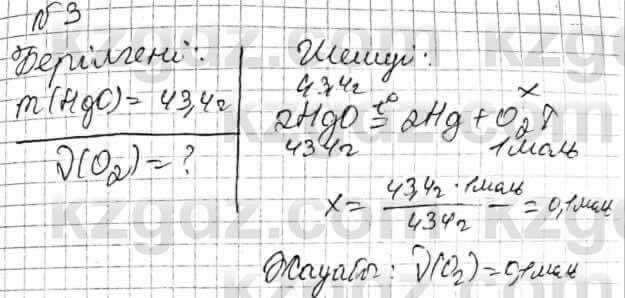 №3
Берілгені:
m(HgO)=43,4г
ν(O₂)=?
Шешуі:
43,4г x
2HgO =t° 2Hg+O₂↑
434г 1моль
x= 43,4г·1моль / 434г =0,1моль
Жауабы: ν(O₂)=0,1моль
kzgdz.com